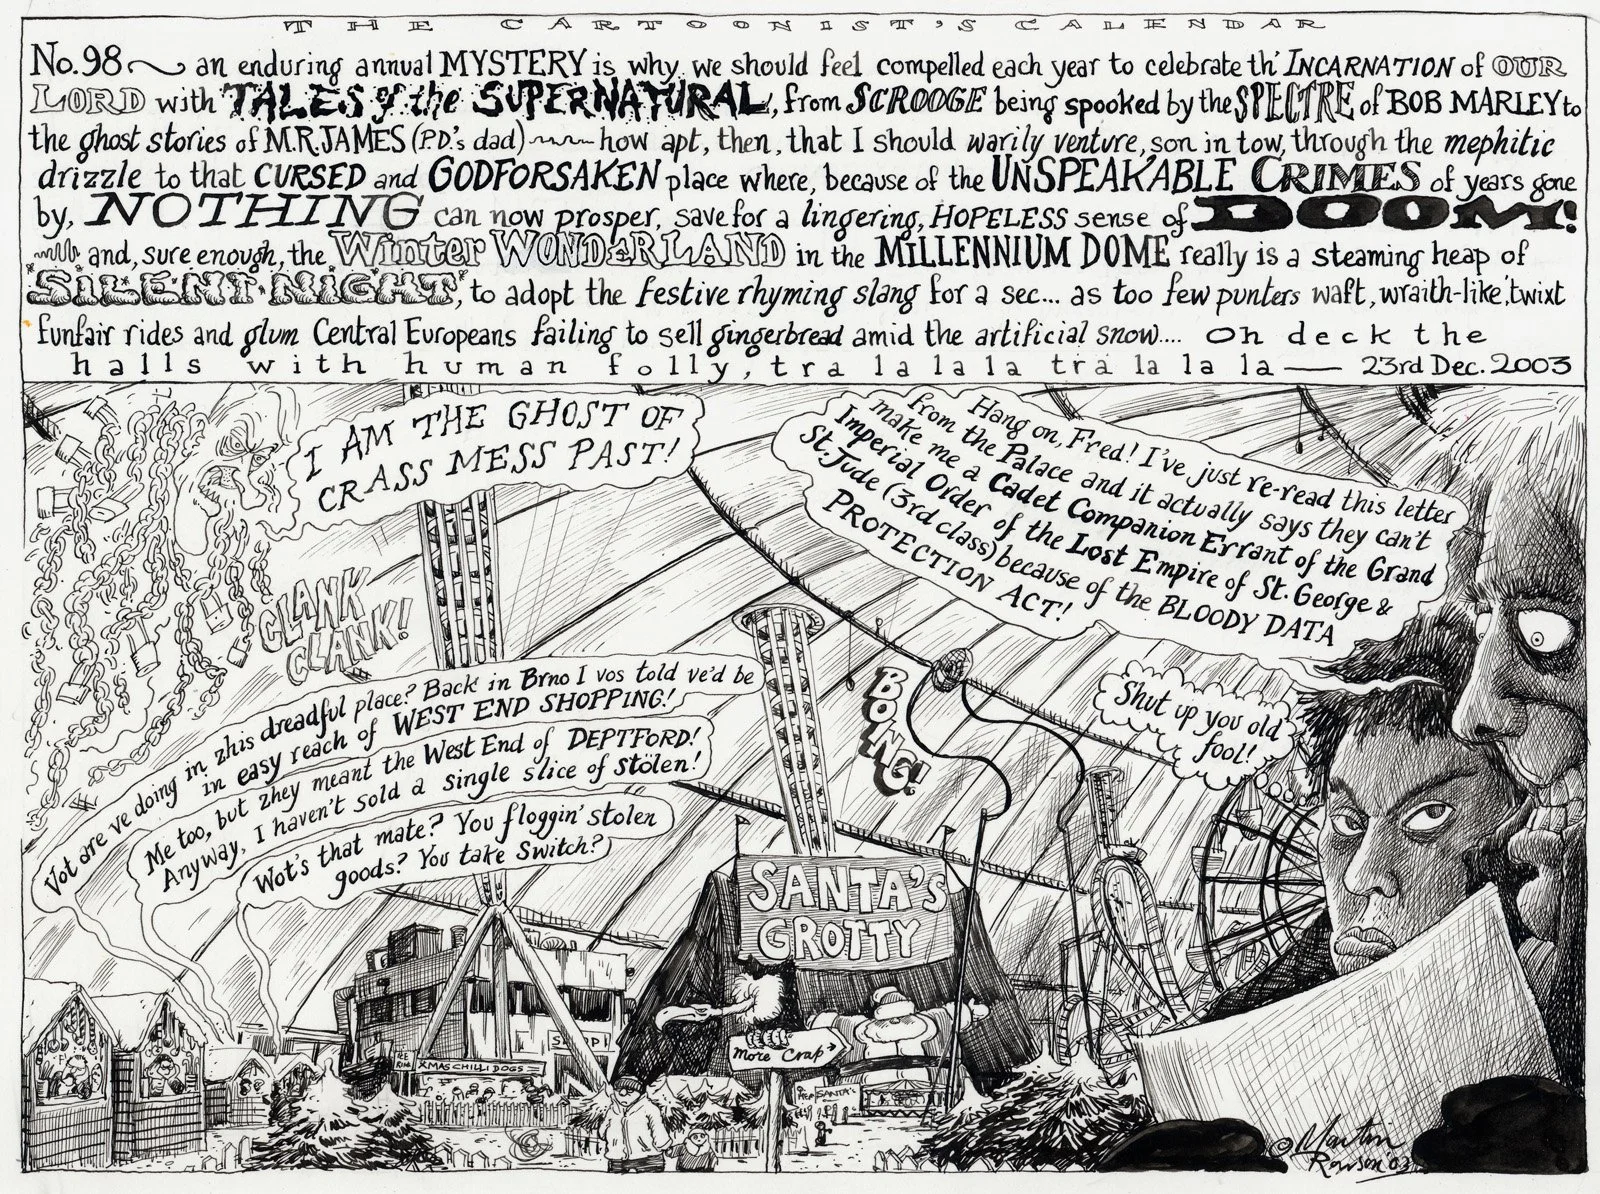 THE CARTOONIST'S CALENDAR
No.98 — an enduring annual MYSTERY is why we should feel compelled each year to celebrate th' INCARNATION of OUR
LORD with TALES of the SUPERNATURAL, from SCROOGE being spooked by the SPECTRE of BOB MARLEY to
the ghost stories of M.R.JAMES (P.D.'s dad) — how apt, then, that I should warily venture, son in tow, through the mephitic
drizzle to that CURSED and GODFORSAKEN place where, because of the UNSPEAKABLE CRIMES of years gone
by, NOTHING can now prosper, save for a lingering, HOPELESS sense of DOOM!
and, sure enough, the Winter WONDERLAND in the MILLENNIUM DOME really is a steaming heap of
'SILENT NIGHT', to adopt the festive rhyming slang for a sec... as too few punters waft, wraith-like, 'twixt
funfair rides and glum Central Europeans failing to sell gingerbread amid the artificial snow.... Oh deck the
halls with human folly, tra la la la tra la la la — 23rd Dec. 2003
I AM THE GHOST OF
CRASS MESS PAST!
CLANK
CLANK!
Hang on, Fred! I've just re-read this letter
from the Palace and it actually says they can't
make me a Cadet Companion Errant of the Grand
Imperial Order of the Lost Empire of St. George &
St. Jude (3rd class) because of the BLOODY DATA
PROTECTION ACT!
Shut up you old
fool!
BOING!
Vot are ve doing in zhis dreadful place? Back in Brno I vos told ve'd be
in easy reach of WEST END SHOPPING!
Me too, but zhey meant the West End of DEPTFORD!
Anyway, I haven't sold a single slice of stölen!
Wot's that mate? You floggin' stolen
goods? You take Switch?
SANTA'S
GROTTY
More Crap
XMAS CHILLI DOGS
© Martin
Rowson '03